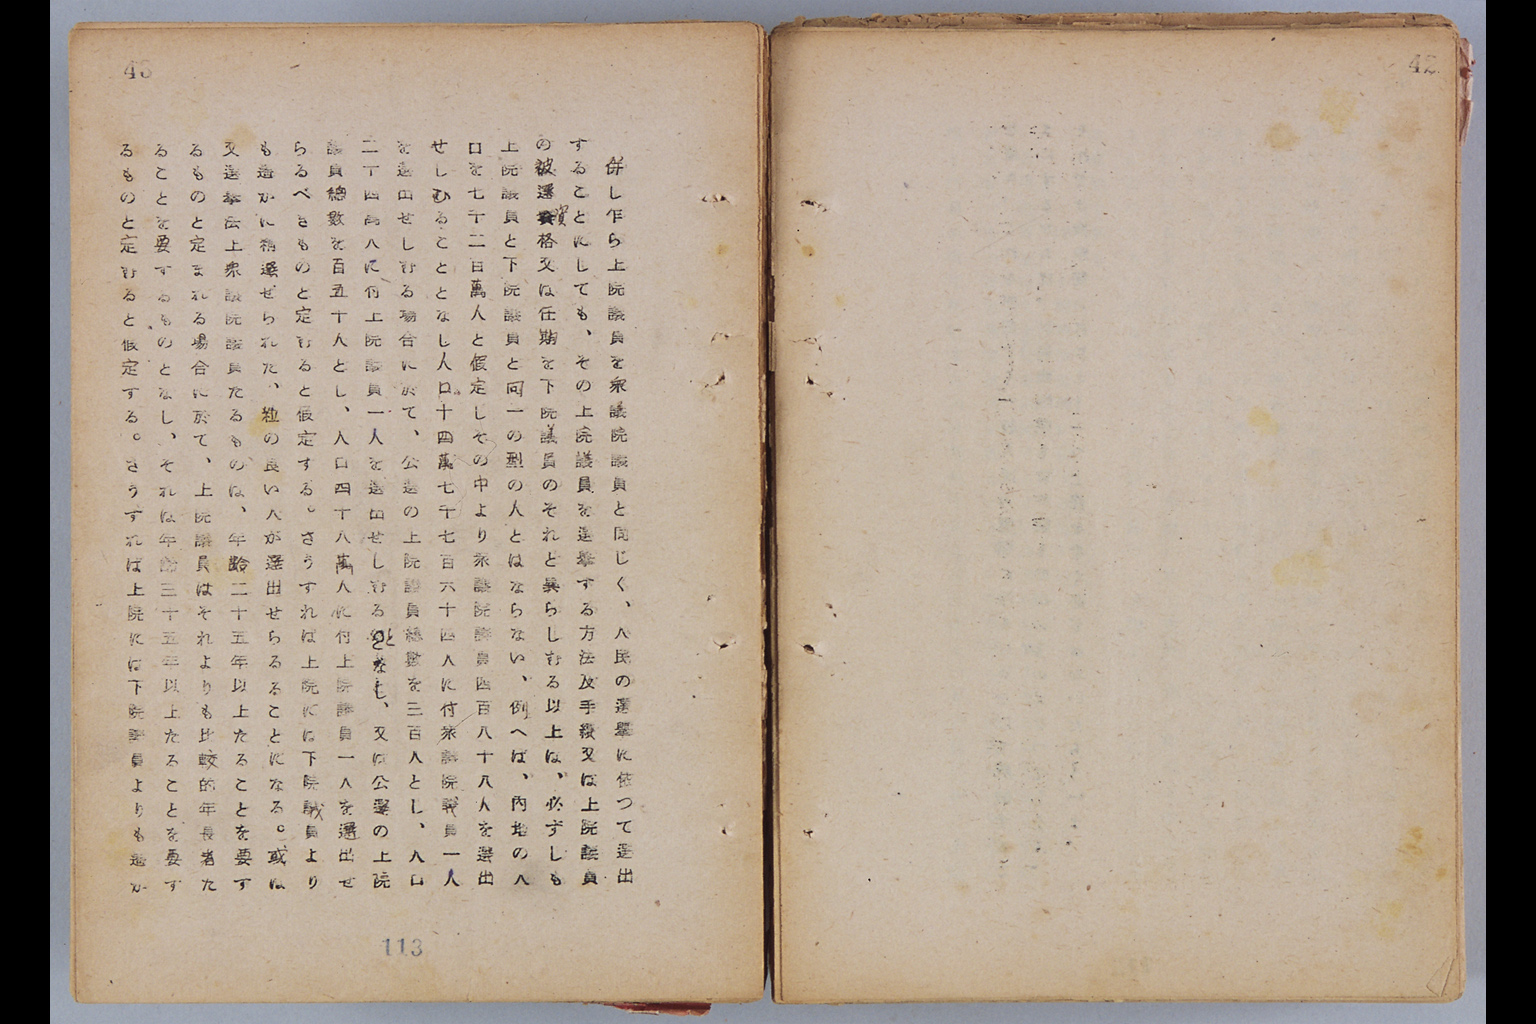 42
43
併し乍ら上院議員を衆議院議員と同じく、人民の選擧に依つて選出
することにしても、その上院議員を選擧する方法及手續又は上院議員
の被選資格又は任期を下院議員のそれと異らしむる以上は、必ずしも
上院議員と下院議員と同一の型の人とはならない、例へば、內地の人
口を七千二百萬人と假定しその中より衆議院議員四百八十八人を選出
せしむることとなし人口十四萬七千七百六十四人に付衆議院議員一人
を選出せしむる場合に於て、公選の上院議員總數を三百人とし、人口
二十四萬人に付上院議員一人を選出せしむることとなし、又は公選の上院
議員總數を百五十人とし、人口四十八萬人に付上院議員一人を選出せ
らるべきものと定むると假定する。さうすれば上院には下院議員より
も遙かに精選ぜられた、粒の良い人が選出せらるることになる。或は
又選擧法上衆議院議員たるものは、年齡二十五年以上たることを要す
るものと定まれる場合に於て、上院議員はそれよりも比較的年長者た
ることを要するものとなし、それは年齡三十五年以上たることを要す
るものと定むると假定する。さうすれば上院には下院議員よりも遙か
113